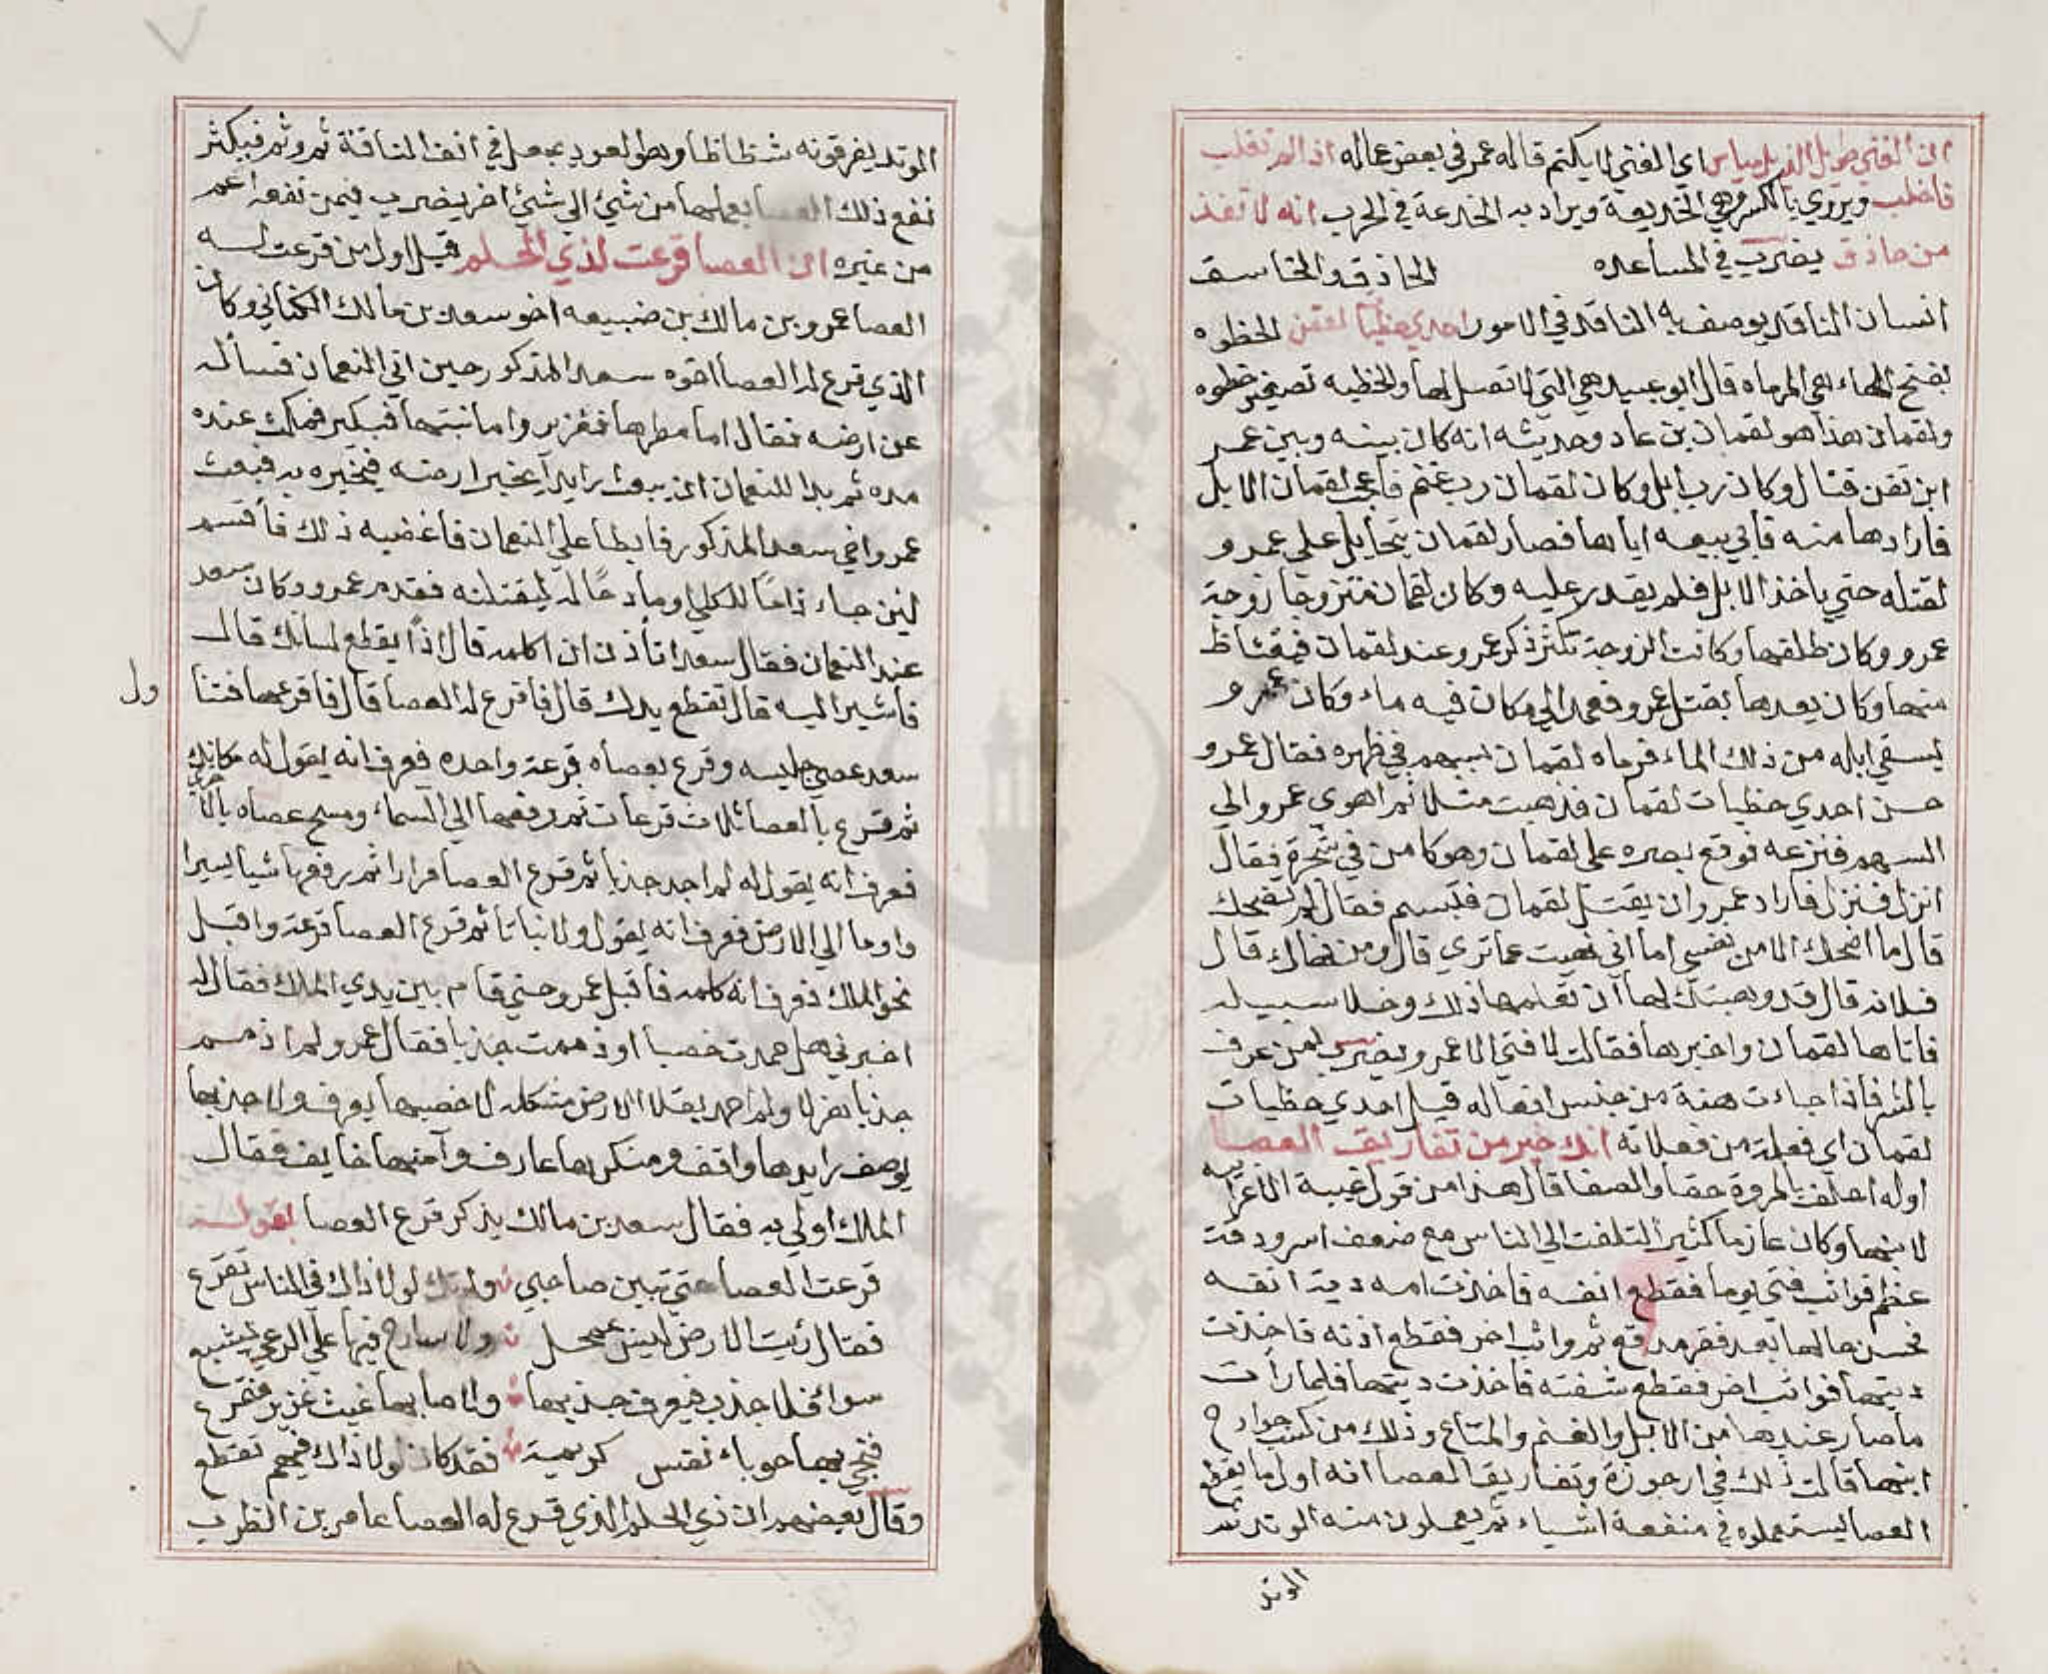 ان الغني طويل الذيل مياس اي الغني لا يكتم قاله عمر في بعض عماله اذا لم تغلب
فاخلب ويروي بالكسر وهي الخديعة ويراد به الخدعة في الحرب انه لا تفذ
من حاذق يضرب في المساعده الحاذق والخاسق
انسان الناقد يوصف به الناقد في الامور احدي حظيات لقمن الحظوه
بفتح الهاء هي المرماه قال ابو عبيد هي التي لا تصل لها والحظيه تصغير حظوه
ولقمان هذا هو لقمان بن عاد وحديثه انه كان بينه وبين عمر
ابن تقن قتال وكان رب ابل وكان لقمان رب غنم فاعجب لقمان الابل
فارادها منه فابي بيعه اياها فصار لقمان يتحايل علي عمرو
لقتله حتي ياخذ الابل فلم يقدر عليه وكان لقمان متزوجا زوجة
عمرو وكان طلقها وكانت الزوجة تكثر ذكر عمرو عند لقمان فيغتاظ
منها وكان يعدها بقتل عمرو فعمد الي مكان فيه ماء وكان عمرو
يسقي ابله من ذلك الماء فرماه لقمان بسهم في ظهره فقال عمرو
حس احدي حظيات لقمان فذهبت مثلا ثم اهوي عمرو الي
السهم فنزعه فوقع بصره علي لقمان وهو كامن في شجرة فقال
انزل فنزل فاراد عمرو ان يقتل لقمان فتبسم فقال لم تضحك
قال ما اضحك الا من نفسي اما اني نهيت عما تري قال ومن نهاك قال
فلانه قال قد وهبتك لها ان تعلمها ذلك وخلا سبيله
فاتاها لقمان واخبرها فقالت لا فتي الا عمرو يضرب لمن عرف
بالشر فاذا جاءت هنة من جنس افعاله قيل احدي حظيات
لقمان اي فعلة من فعلاته انك خير من تفاريق العصا
اوله احلف بالمروة حقا والصفا قال هذا من قول غيبة الاعرابيه
لابنها وكان عازما كثير التلفت الي الناس مع ضعف اسر ودقة
عظم فواثب فتي يوما فقطع انفه فاخذت امه دية انفه
فحسن حالها بعد فقر مدقع ثم واثب اخر فقطع اذنه فاخذت
ديتها فواثب اخر فقطع شفته فاخذت ديتها فلما رات
ما صار عندها من الابل والغنم والمتاع وذلك من كسب جوارح
ابنها قالت ذلك في ارجوزة وتفاريق العصا انه اول ما يقطع
العصا ليستعملوه في منفعة اشياء ثم يعملون منه الوتد ثم
الوتد
الوتد يفرقونه شظاظا وهو العود يجعل في انف الناقة ثم وثم فيكثر
نفع ذلك العصا بعملها من شئ الي شئ اخر يضرب فيمن نفعه اعم
من غيره ان العصا قرعت لذي الحلم قيل اول من قرعت له
العصا عمرو بن مالك بن ضبيعه اخو سعد بن مالك الكناني وكان
الذي قرع له العصا اخوه سعد المذكور حين اتي النعمان فسأله
عن ارضه فقال اما مطرها فغزير واما نبتها فبكير فمكث عنده
مده ثم بدا للنعمان ان يبعث رايدا يختبر ارضه فيخبره به فبعث
عمروا اخي سعد المذكور فابطا علي النعمان فاغضبه ذلك فأقسم
لئن جاء ذامّا للكلا او مادحًا له ليقتلنه فقدم عمرو وكان سعد
عند النعمان فقال سعد اتأذن ان اكلمه قال اذًا يقطع لسانك قال
فأشير اليه قال تقطع يدك قال فاقرع له العصا قال فاقرعها فتنا
ول
سعد عصي جليسه وقرع بعصاه قرعة واحده فعرف انه يقول له مكانك
ثم قرع بالعصا ثلاث قرعات ثم رفعها الي السماء ومسح عصاه بالاخري
فعرف انه يقول له لم اجد جذبا ثم قرع العصا مرارا ثم رفعها شيا يسيرا
واوما الي الارض فعرف انه يقول ولا نباتا ثم قرع العصا قرعة واقبل
نحو الملك فعرف انه كلمه فاقبل عمرو حتي قام بين يدي الملك فقال له
اخبرني هل حمدت خصبا او ذممت جذبا فقال عمرو لم اذمم
جذبا هزلا ولم احمد بقلا الارض مشكله لا خصبها يعرف ولا جذبها
يوصف رايدها واقف ومنكرها عارف وآمنها خايف فقال
الملك اولي به فقال سعد بن مالك يذكر قرع العصا بقوله
قرعت العصا حتي تبين صاحبي ولم تك لولا ذاك في الناس تقرع
فقال رئيت الارض ليس بممحل ولا سارح فيها علي الرعي يشبع
سواء فلا جذب فيعرف جذبها ولا صابها غيث غزير فتمرع
فنجي بها حوباء نفس كريمة فقد كاد لولا ذاك فيهم تقطع
وقال بعضهم ان ذي الحلم الذي قرع له العصا عامر بن الظرب